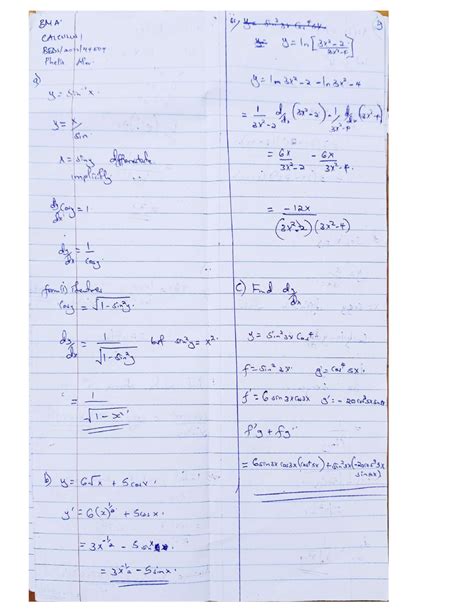 BMA
CALCULUS 1
a)
y = sin⁻¹x.
y = x/sin
x = siny differentiate
implicitly
dy/dx cosy = 1
dy/dx = 1/cosy
from (i) therefore
cosy = √(1-sin²y).
dy/dx = 1/√(1-sin²y) but sin²y = x².
= 1/√(1-x²)
b) y = 6√x + 5cosx.
y' = 6(x)^½ + 5cosx.
= 3x^-½ - 5sinx.
= 3x^-½ - 5sinx.
y = ln[(3x²-2)/(3x²-4)]
y = ln 3x²-2 - ln 3x²-4
= 1/(3x²-2) d/dx (3x²-2) - 1/(3x²-4) d/dx (3x²-4)
= 6x/(3x²-2) - 6x/(3x²-4).
= -12x/((3x²-2)(3x²-4))
c) Find dy/dx
y = sin²3x cos⁴
f = sin²3x. g = cos⁴5x.
f' = 6sin3xcos3x g' = -20cos³5xsin5x
f'g + fg'
= 6sin3x cos3x(cos⁴5x) + sin²3x(-20cos³5x
sin5x)